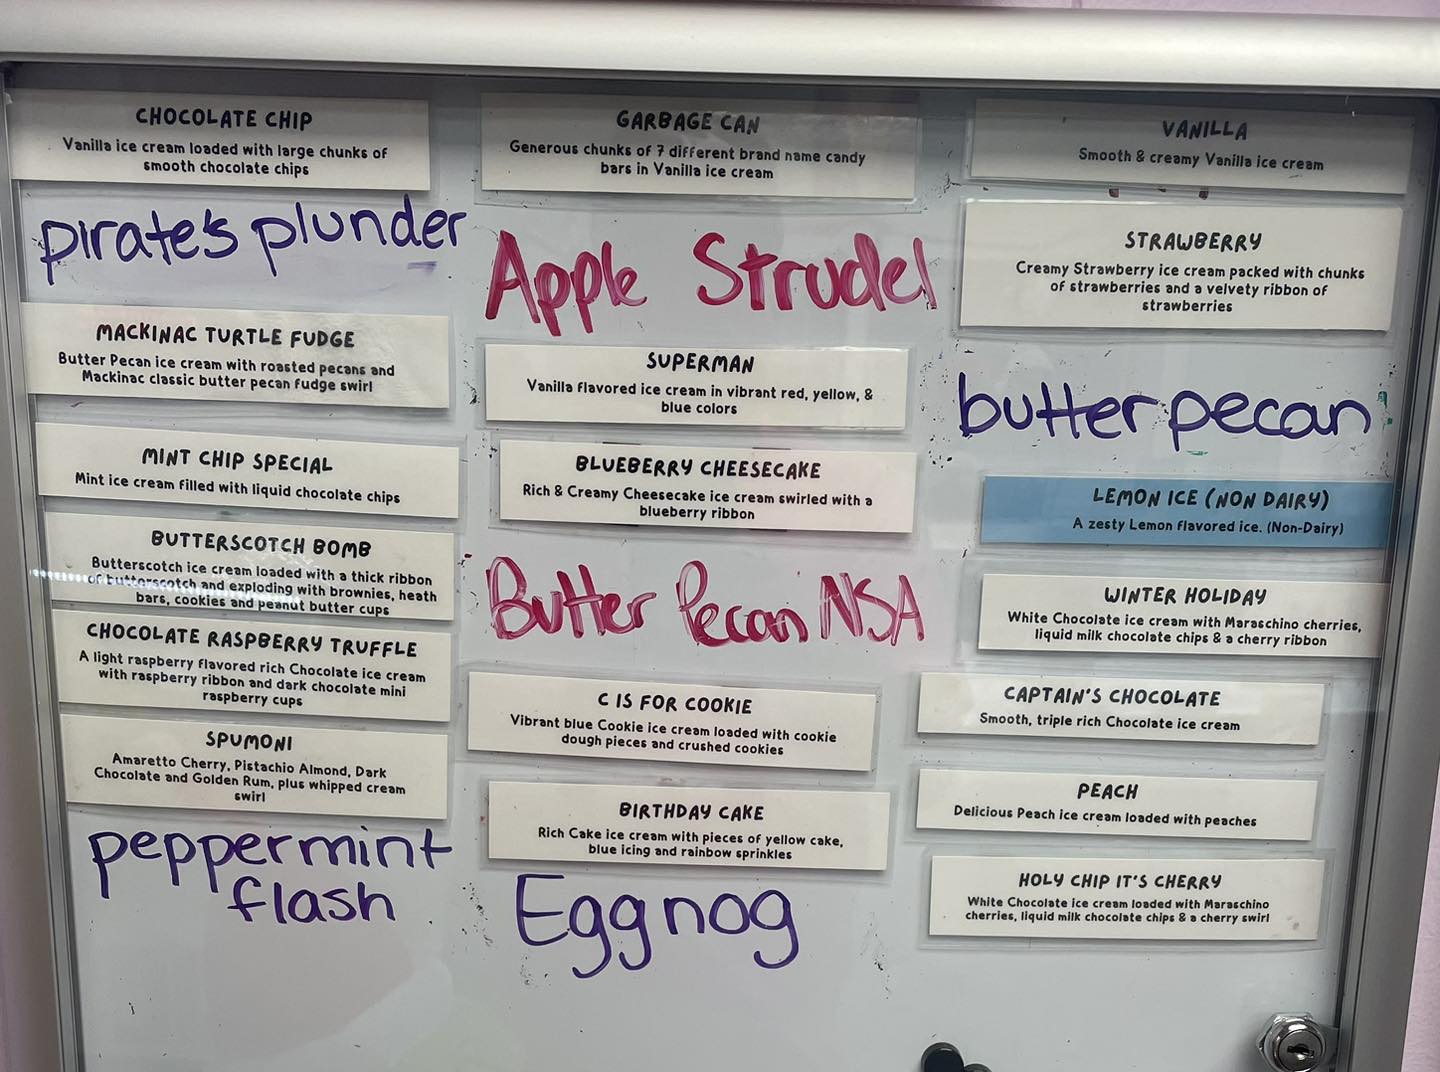 CHOCOLATE CHIP
Vanilla ice cream loaded with large chunks of
smooth chocolate chips
pirate's plunder
MACKINAC TURTLE FUDGE
Butter Pecan ice cream with roasted pecans and
Mackinac classic butter pecan fudge swirl
MINT CHIP SPECIAL
Mint ice cream filled with liquid chocolate chips
BUTTERSCOTCH BOMB
Butterscotch ice cream loaded with a thick ribbon
of butterscotch and exploding with brownies, heath
bars, cookies and peanut butter cups
CHOCOLATE RASPBERRY TRUFFLE
A light raspberry flavored rich Chocolate ice cream
with raspberry ribbon and dark chocolate mini
raspberry cups
SPUMONI
Amaretto Cherry, Pistachio Almond, Dark
Chocolate and Golden Rum, plus whipped cream
swirl
peppermint
flash
GARBAGE CAN
Generous chunks of 7 different brand name candy
bars in Vanilla ice cream
Apple Strudel
SUPERMAN
Vanilla flavored ice cream in vibrant red, yellow, &
blue colors
BLUEBERRY CHEESECAKE
Rich & Creamy Cheesecake ice cream swirled with a
blueberry ribbon
Butter Pecan NSA
C IS FOR COOKIE
Vibrant blue Cookie ice cream loaded with cookie
dough pieces and crushed cookies
BIRTHDAY CAKE
Rich Cake ice cream with pieces of yellow cake,
blue icing and rainbow sprinkles
Eggnog
VANILLA
Smooth & creamy Vanilla ice cream
STRAWBERRY
Creamy Strawberry ice cream packed with chunks
of strawberries and a velvety ribbon of
strawberries
butter pecan
LEMON ICE (NON DAIRY)
A zesty Lemon flavored ice. (Non-Dairy)
WINTER HOLIDAY
White Chocolate ice cream with Maraschino cherries,
liquid milk chocolate chips & a cherry ribbon
CAPTAIN'S CHOCOLATE
Smooth, triple rich Chocolate ice cream
PEACH
Delicious Peach ice cream loaded with peaches
HOLY CHIP IT'S CHERRY
White Chocolate ice cream loaded with Maraschino
cherries, liquid milk chocolate chips & a cherry swirl